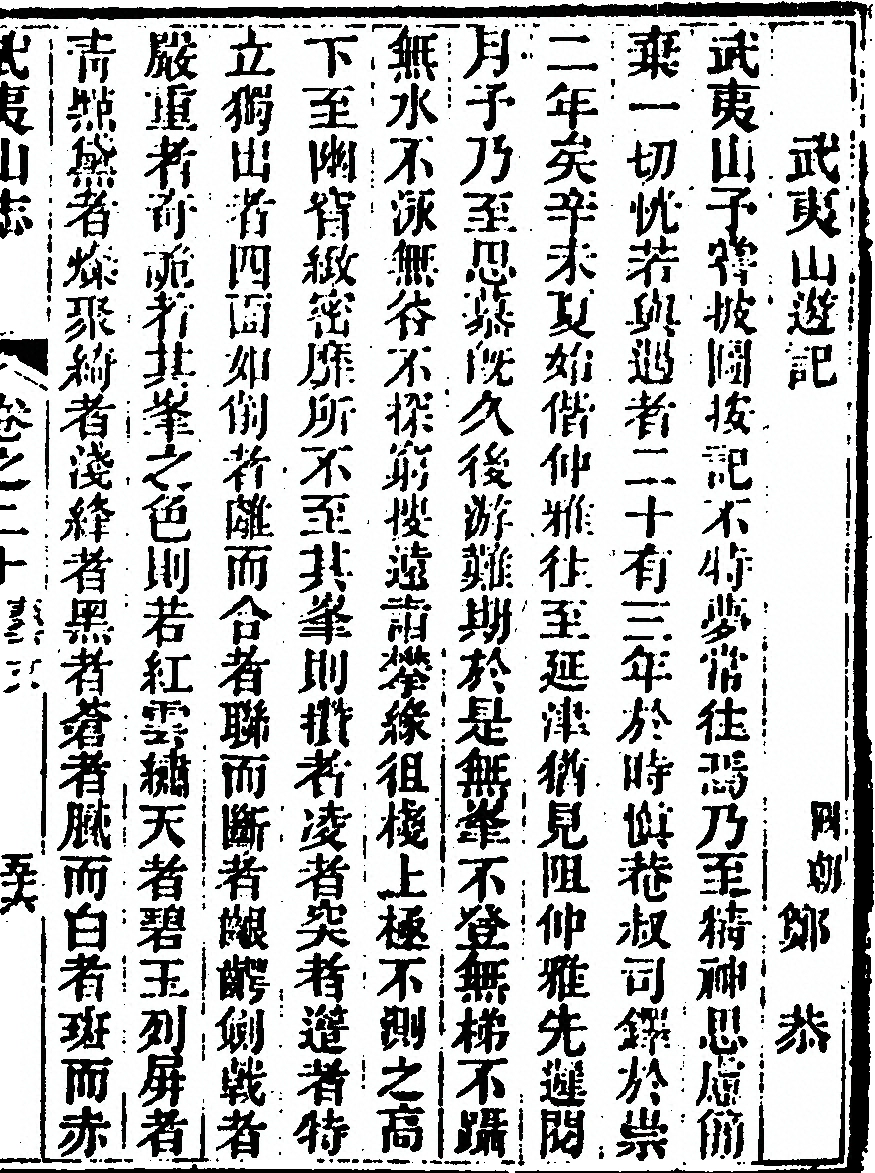 武夷山遊記
國朝鄭 恭
武夷山予嘗披圖按記不特夢常往焉乃至精神思慮俯
棄一切恍若與過者二十有三年於時慎菴叔司鐸於崇
二年矣辛未夏始偕仲雅往至延津猶見阻仲雅先遲閱
月予乃至思慕既久後游難期於是無峯不登無梯不躡
無水不泳無谷不探窮搜遠詣攀緣徂棧上極不測之高
下至幽窅緻密靡所不至其峯則攢者凌者突者邅者特
立獨出者四面如削者離而合者聯而斷者齦齶劍戟者
嚴重者奇詭者其峯之色則若紅雲繡天者碧玉列屏者
青點黛者爍聚綺者淺絳者黑者蒼者膩而白者斑而赤
武夷山志
卷之二十
藝文
五六